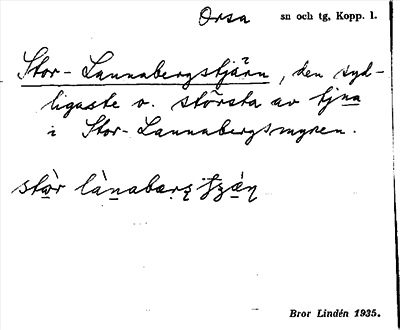 Orsa sn och tg, Kopp. l.
Stor-Lannabergstjärn, den syd-
ligaste o. största av tjna
i Stor-Lannabergsmyren.
Bror Lindén 1935.